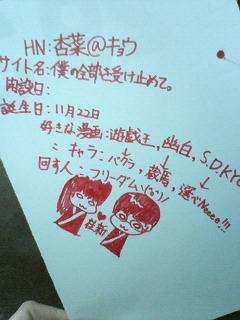 HN:杏菜@キョウ
サイト名:僕の全部を受け止めて。
開設日:
誕生日:11月22日
好きな漫画:遊戯王,幽白,S.D.KYO
〃キャラ:バクラ,蔵馬,選べNeeee!!!
回す人:フリーダムにバトン!
桂新